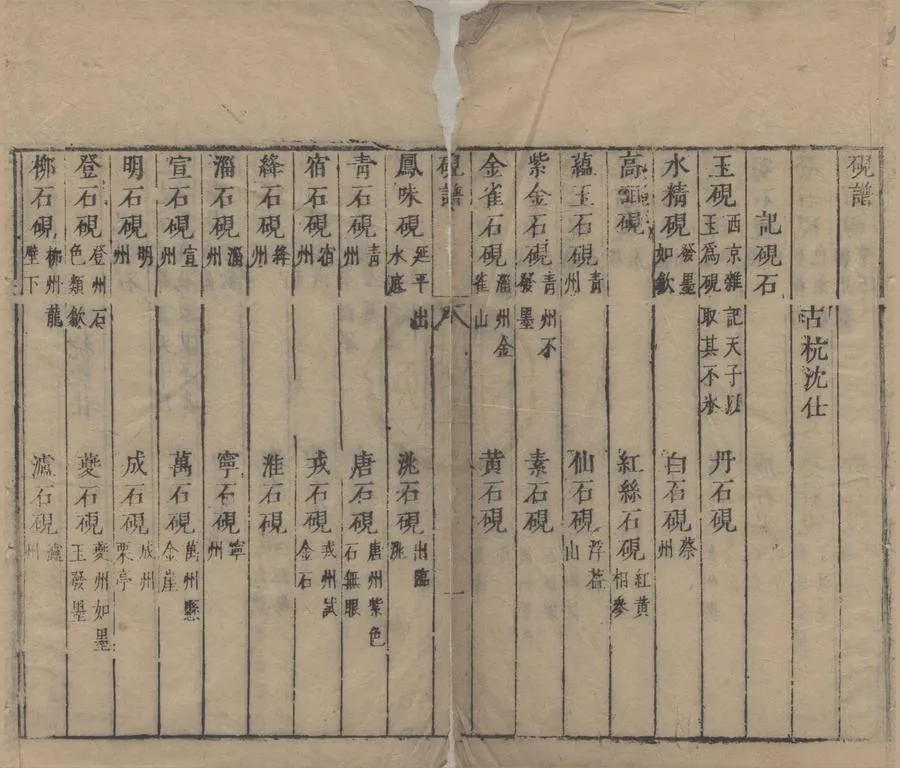 硯譜
古杭沈仕
記硯石
玉硯 西京雜記天子以玉爲硯取其不氷 丹石硯
水精硯 發墨如歙 白石硯 蔡州
高硯 紅絲石硯 紅黃相參
蘊玉石硯 青州 仙石硯 浮蓋山
紫金石硯 青州不發墨 素石硯
金雀石硯 淄州金雀山 黃石硯
硯譜 一
鳳味硯 延平出水底 洮石硯 出臨洮
青石硯 青州 唐石硯 唐州紫色石無眼
宿石硯 宿州 戎石硯 戎州試金石
絳石硯 絳州 淮石硯
淄石硯 淄州 寧石硯 寧州
宣石硯 宣州 萬石硯 萬州懸金崖
明石硯 明州 成石硯 成州栗亭
登石硯 登州石色類歙 夔石硯 夔州如墨玉發墨
柳石硯 柳州龍壁下 瀘石硯 瀘州